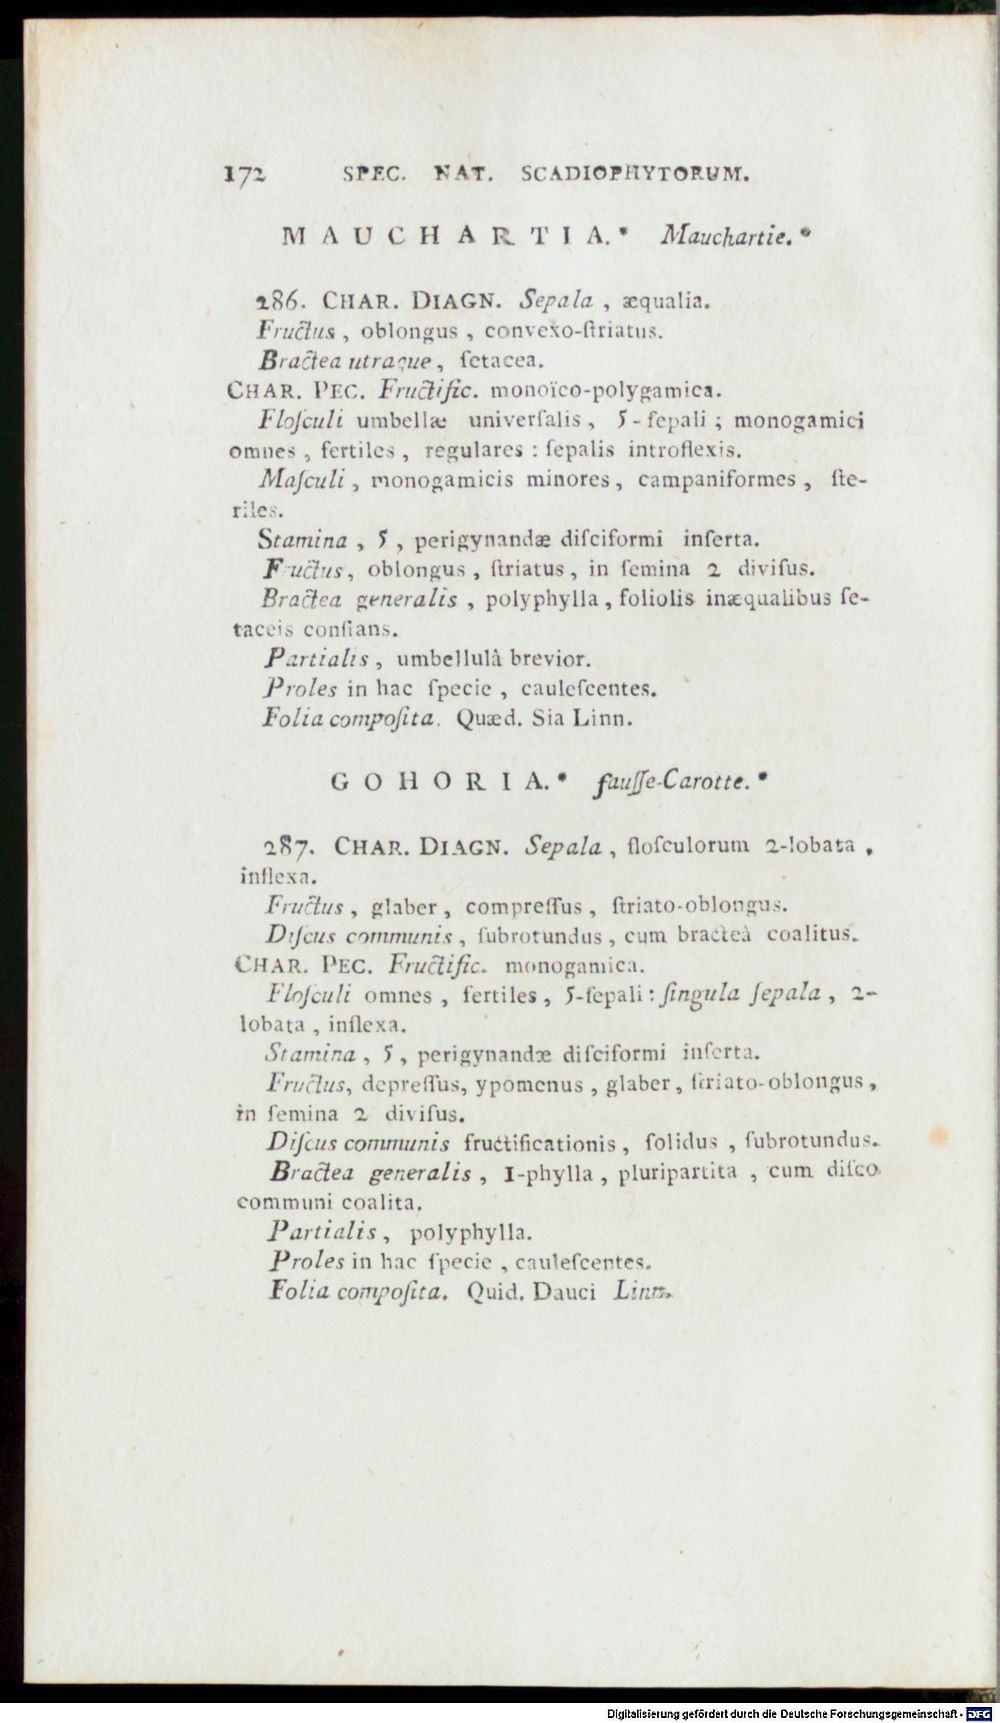 172 SPEC. NAT. SCADIOPHYTORUM.
MAUCHARTIA.* Mauchartie.*
286. CHAR. DIAGN. Sepala, æqualia.
Fructus, oblongus, convexo-ſtriatus.
Bractea utraque, ſetacea.
CHAR. PEC. Fructific. monoïco-polygamica.
Floſculi umbellæ univerſalis, 5-ſepali; monogamici
omnes, fertiles, regulares: ſepalis introflexis.
Maſculi, monogamicis minores, campaniformes, ſte-
riles.
Stamina, 5, perigynandæ diſciformi inſerta.
Fructus, oblongus, ſtriatus, in ſemina 2 diviſus.
Bractea generalis, polyphylla, foliolis inæqualibus ſe-
taceis conſtans.
Partialis, umbellulâ brevior.
Proles in hac ſpecie, cauleſcentes.
Folia compoſita. Quæd. Sia Linn.
GOHORIA.* fauſſe-Carotte.*
287. CHAR. DIAGN. Sepala, floſculorum 2-lobata,
inflexa.
Fructus, glaber, compreſſus, ſtriato-oblongus.
Diſcus communis, ſubrotundus, cum bracteâ coalitus.
CHAR. PEC. Fructific. monogamica.
Floſculi omnes, fertiles, 5-ſepali: ſingula ſepala, 2-
lobata, inflexa.
Stamina, 5, perigynandæ diſciformi inſerta.
Fructus, depreſſus, ypomenus, glaber, ſtriato-oblongus,
in ſemina 2 diviſus.
Diſcus communis fructificationis, ſolidus, ſubrotundus.
Bractea generalis, 1-phylla, pluripartita, cum diſco
communi coalita.
Partialis, polyphylla.
Proles in hac ſpecie, cauleſcentes.
Folia compoſita. Quid. Dauci Linn.
Digitalisierung gefördert durch die Deutsche Forschungsgemeinschaft - DFG